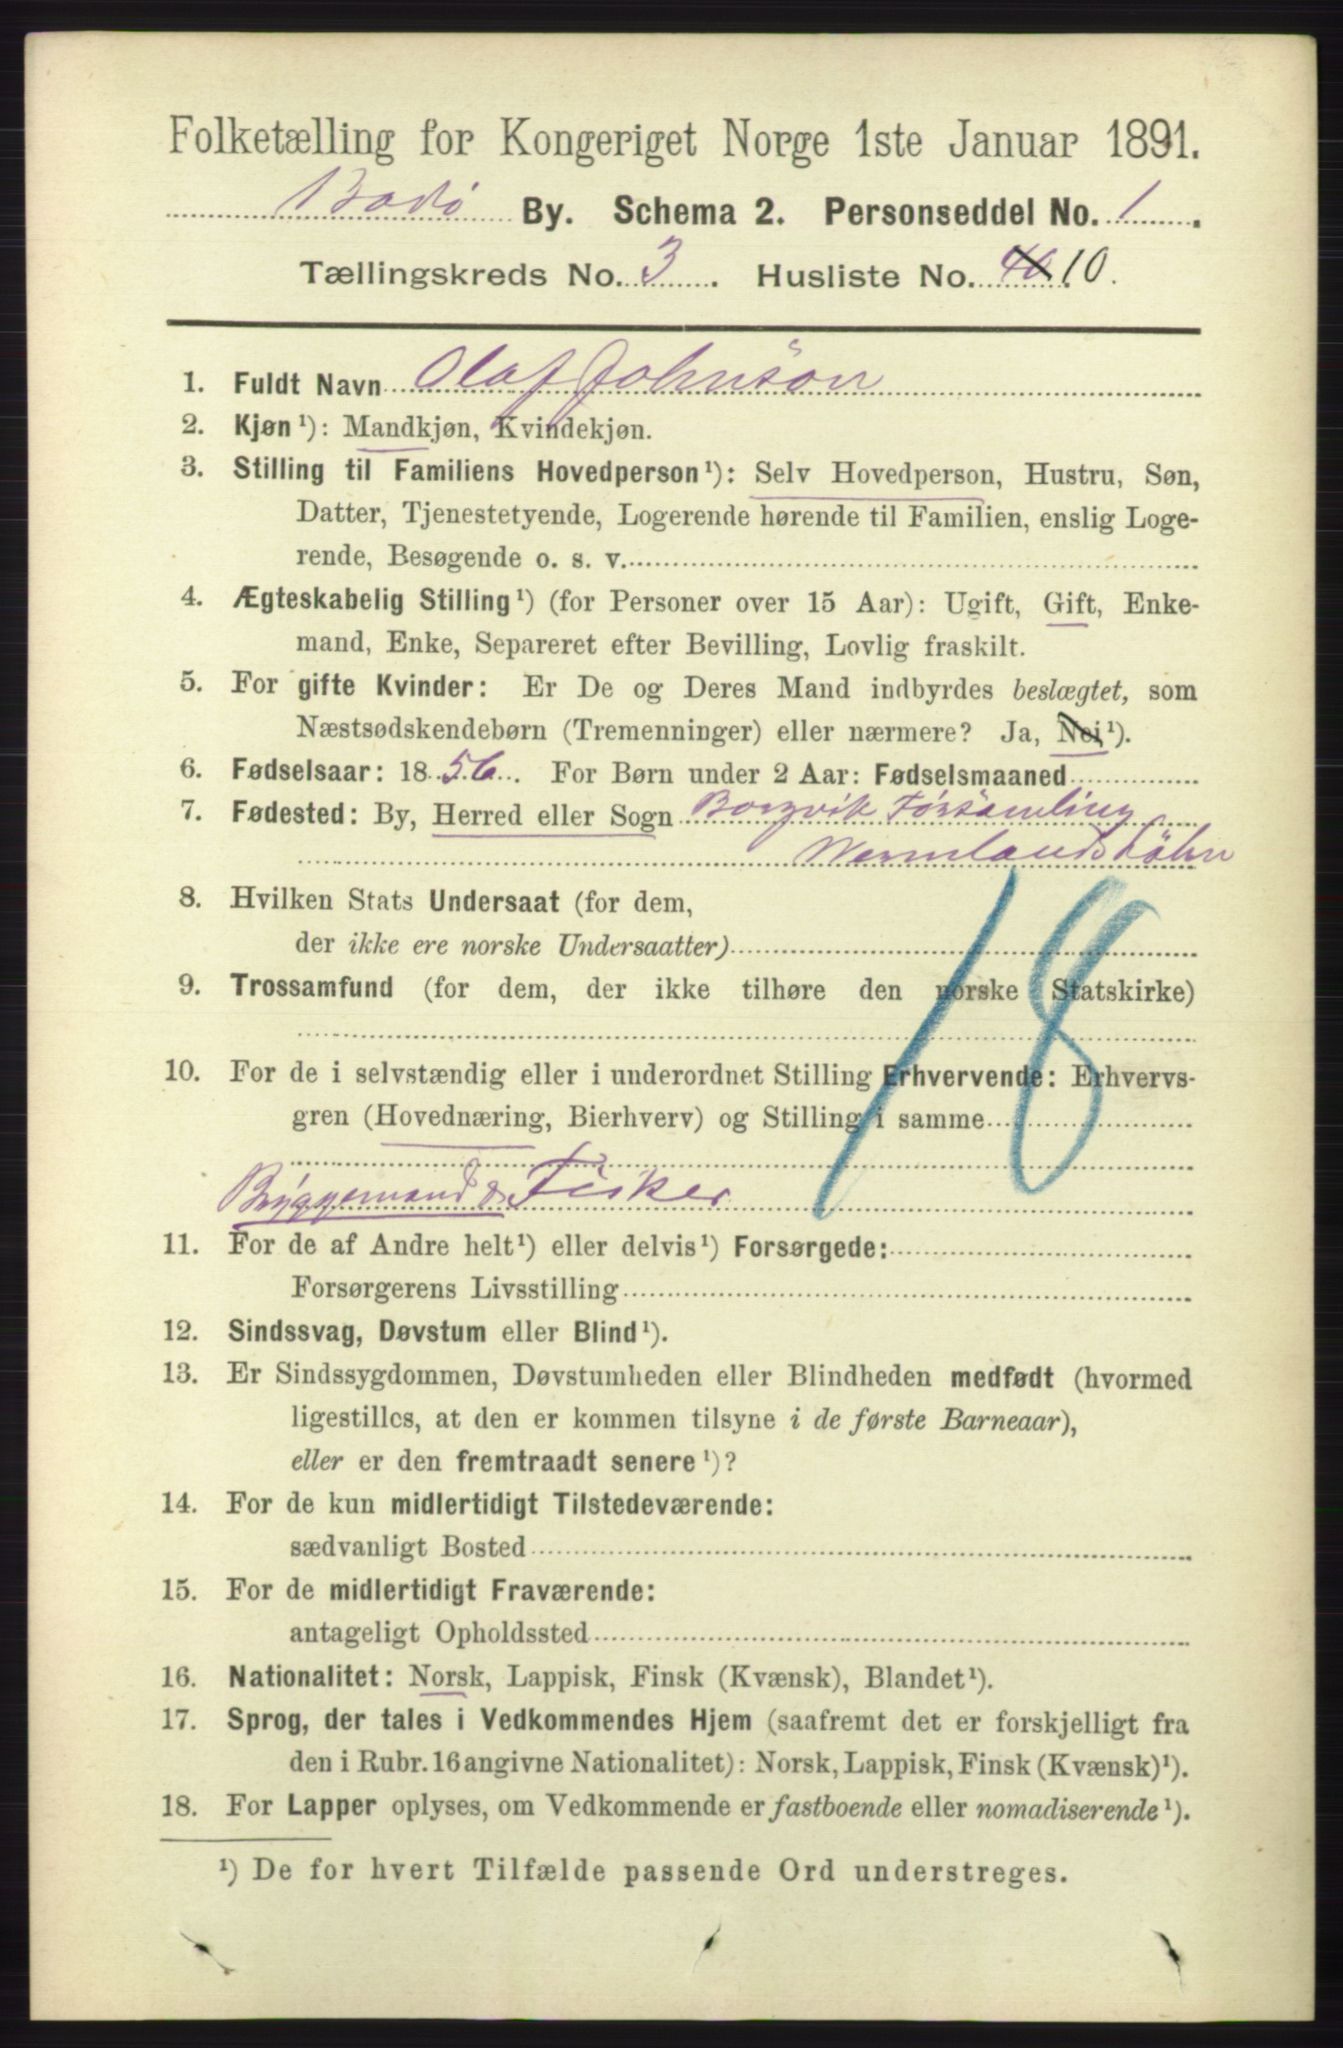 Folketælling for Kongeriget Norge 1ste Januar 1891.
Bodø By. Schema 2. Personseddel No. 1.
Tællingskreds No. 3. Husliste No. 40 10.
1. Fuldt Navn Olaf Johnson
2. Kjøn ¹): Mandkjøn, Kvindekjøn.
3. Stilling til Familiens Hovedperson ¹): Selv Hovedperson, Hustru, Søn,
Datter, Tjenestetyende, Logerende hørende til Familien, enslig Loge-
rende, Besøgende o. s. v.
4. Ægteskabelig Stilling ¹) (for Personer over 15 Aar): Ugift, Gift, Enke-
mand, Enke, Separeret efter Bevilling, Lovlig fraskilt.
5. For gifte Kvinder: Er De og Deres Mand indbyrdes beslægtet, som
Næstsødskendebørn (Tremenninger) eller nærmere? Ja, Nei ¹).
6. Fødselsaar: 1856. For Børn under 2 Aar: Fødselsmaaned
7. Fødested: By, Herred eller Sogn Borgvik Församling
Wermlands Löhn
8. Hvilken Stats Undersaat (for dem,
der ikke ere norske Undersaatter)
9. Trossamfund (for dem, der ikke tilhøre den norske Statskirke)
18
10. For de i selvstændig eller i underordnet Stilling Erhvervende: Erhvervs-
gren (Hovednæring, Bierhverv) og Stilling i samme
Byggemand & Fisker
11. For de af Andre helt ¹) eller delvis ¹) Forsørgede:
Forsørgerens Livsstilling
12. Sindssvag, Døvstum eller Blind ¹).
13. Er Sindssygdommen, Døvstumheden eller Blindheden medfødt (hvormed
ligestilles, at den er kommen tilsyne i de første Barneaar),
eller er den fremtraadt senere ¹)?
14. For de kun midlertidigt Tilstedeværende:
sædvanligt Bosted
15. For de midlertidigt Fraværende:
antageligt Opholdssted
16. Nationalitet: Norsk, Lappisk, Finsk (Kvænsk), Blandet ¹).
17. Sprog, der tales i Vedkommendes Hjem (saafremt det er forskjelligt fra
den i Rubr. 16 angivne Nationalitet): Norsk, Lappisk, Finsk (Kvænsk) ¹).
18. For Lapper oplyses, om Vedkommende er fastboende eller nomadiserende ¹).
¹) De for hvert Tilfælde passende Ord understreges.